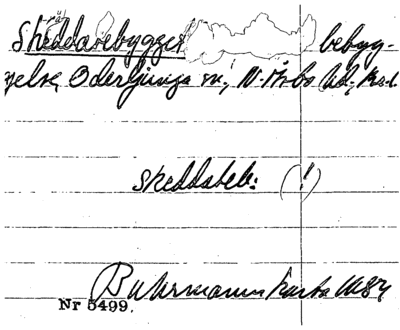 Skeddabebygget bebyg-
gelse, Oderljunga sn, N. Åsbo hd, Kr.l.
skeddabek: (!)
Buhrmanns karta 1684
Nr 5499.